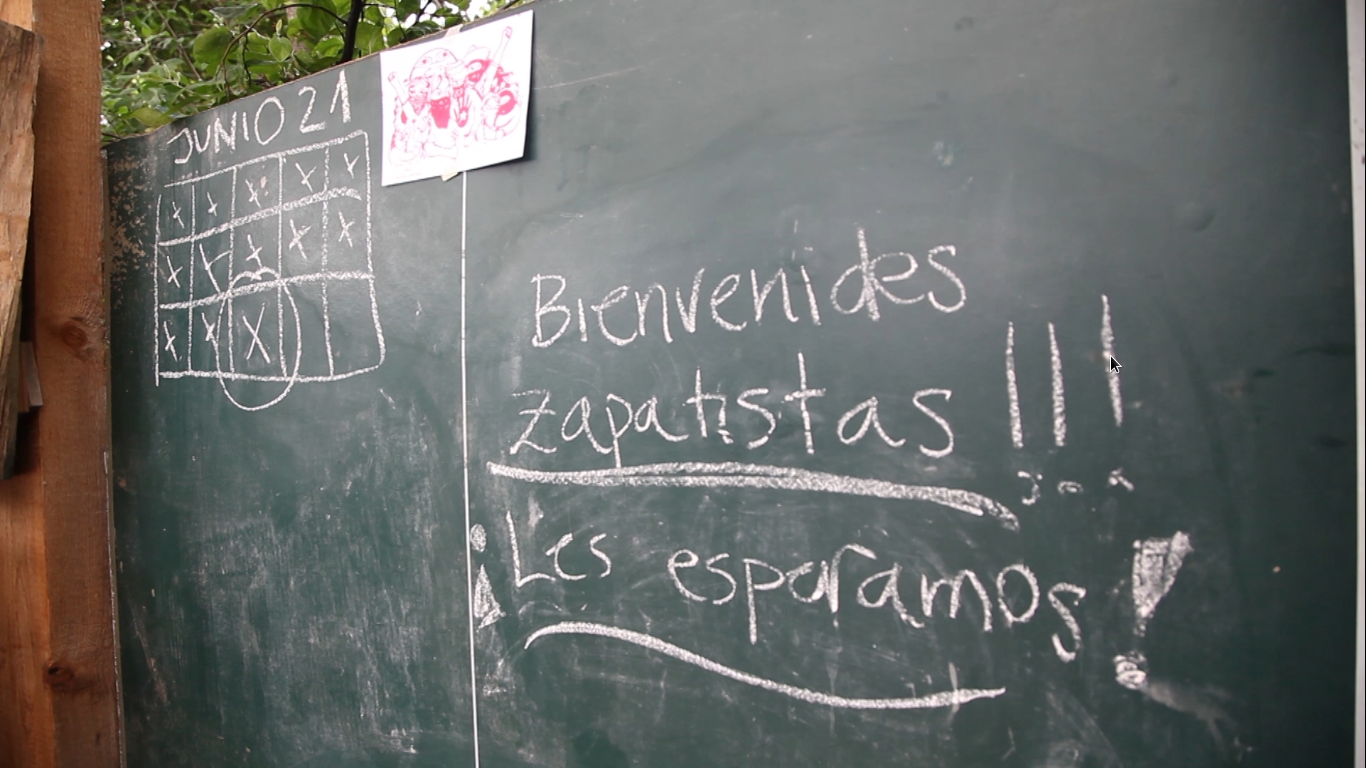 JUNIO 21
Bienvenides
zapatistas !!!
¡Les esperamos!